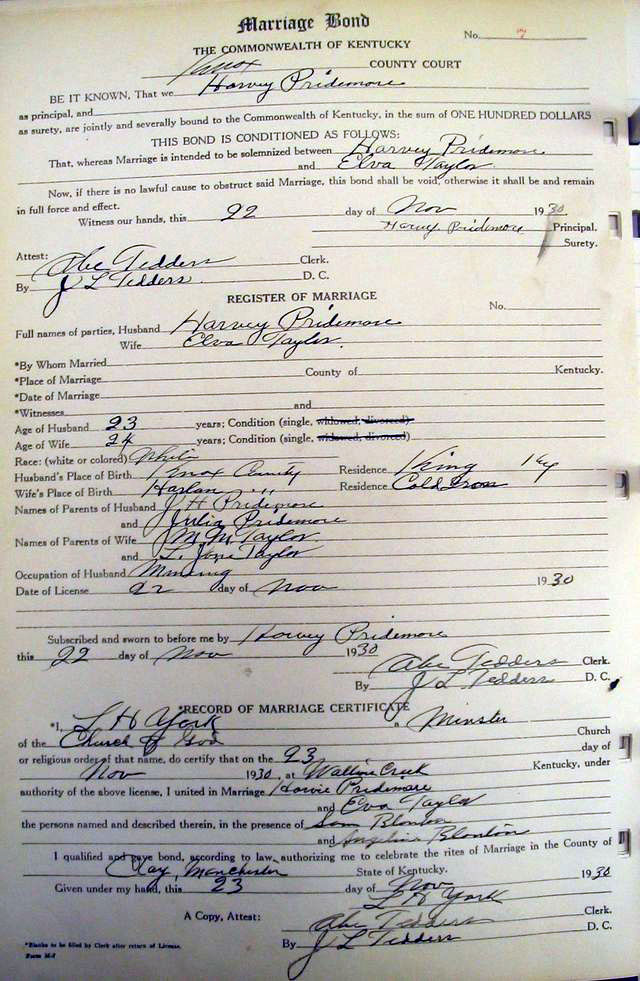 Marriage Bond
No. 7
THE COMMONWEALTH OF KENTUCKY
Knox COUNTY COURT
BE IT KNOWN, That we Harvey Pridemore
as principal, and
as surety, are jointly and severally bound to the Commonwealth of Kentucky, in the sum of ONE HUNDRED DOLLARS
THIS BOND IS CONDITIONED AS FOLLOWS:
That, whereas Marriage is intended to be solemnized between Harvey Pridemore
and Elva Taylor
Now, if there is no lawful cause to obstruct said Marriage, this bond shall be void, otherwise it shall be and remain
in full force and effect.
Witness our hands, this 22 day of Nov 1930
Harvey Pridemore Principal.
Surety.
Attest:
Abe Tedders Clerk.
By J L Tedders D. C.
REGISTER OF MARRIAGE
No.
Full names of parties, Husband Harvey Pridemore
Wife Elva Taylor.
*By Whom Married
*Place of Marriage County of Kentucky.
*Date of Marriage
*Witnesses and
Age of Husband 23 years; Condition (single, widowed, divorced)
Age of Wife 24 years; Condition (single, widowed, divorced)
Race: (white or colored) White
Husband's Place of Birth Knox County Residence King Ky
Wife's Place of Birth Harlan " Residence Cold
Names of Parents of Husband J H Pridemore
and Julia Pridemore
Names of Parents of Wife M. M. Taylor
and L. Jane Taylor
Occupation of Husband Mining
Date of License 22 day of Nov 1930
Subscribed and sworn to before me by Harvey Pridemore
this 22 day of Nov 1930
Abe Tedders Clerk.
By J L Tedders D. C.
*RECORD OF MARRIAGE CERTIFICATE
*I, L H York a Minster
of the Church of God Church
or religious order of that name, do certify that on the 23 day of
Nov 1930, at Creek Kentucky, under
authority of the above license, I united in Marriage Howie Pridemore
and Eva Taylor
the persons named and described therein, in the presence of Sam Blonton
and Angeline Blonton
I qualified and gave bond, according to law, authorizing me to celebrate the rites of Marriage in the County of
Clay, Manchester State of Kentucky.
Given under my hand, this 23 day of Nov 1930
L H York
A Copy, Attest: Abe Tedders Clerk.
By J L Tedders D. C.
*Blanks to be filled by Clerk after return of License.